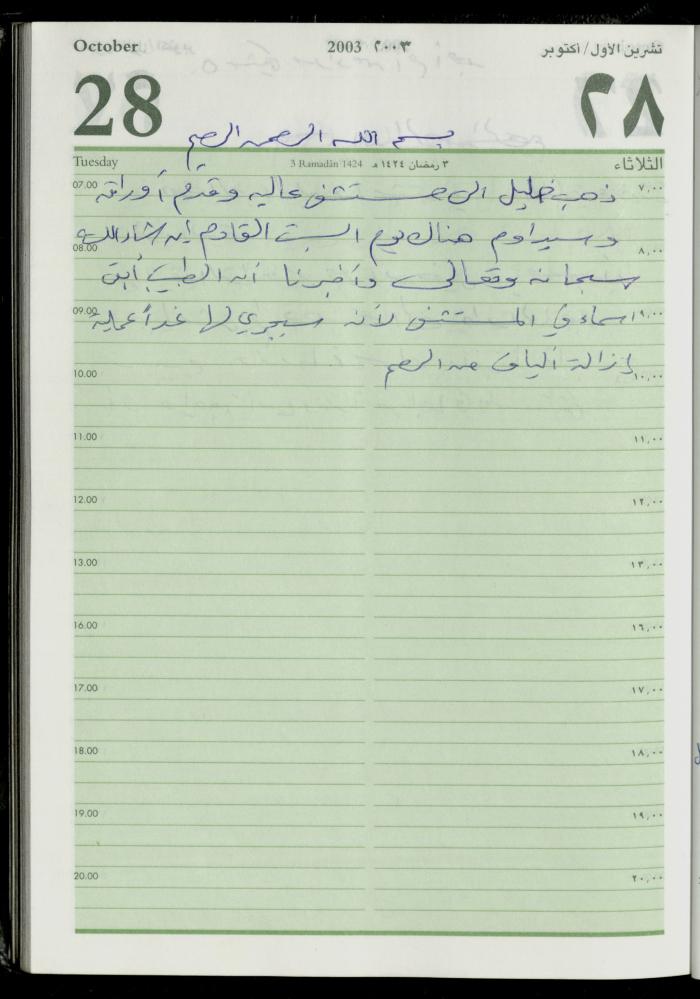 October 2003 ٢٠٠٣ تشرين الأول/أكتوبر
28 ٢٨
بسم الله الرحمن الرحيم
Tuesday 3 Ramadān 1424 ٣ رمضان ١٤٢٤ هـ الثلاثاء
07.00 ٧,٠٠
ذهب خليل الى مستشفى عاليه وقدم أوراقه
وسيداوم هناك يوم السبت القادم إن شاء الله
08.00 ٨,٠٠
سبحانه وتعالى وأخبرنا أن الطبيب أبقى
09.00 ٩,٠٠
اسماء في المستشفى لأنه سيجري لها غداً عملية
إزالة ألياف من الرحم
10.00 ١٠,٠٠
11.00 ١١,٠٠
12.00 ١٢,٠٠
13.00 ١٣,٠٠
16.00 ١٦,٠٠
17.00 ١٧,٠٠
18.00 ١٨,٠٠
19.00 ١٩,٠٠
20.00 ٢٠,٠٠